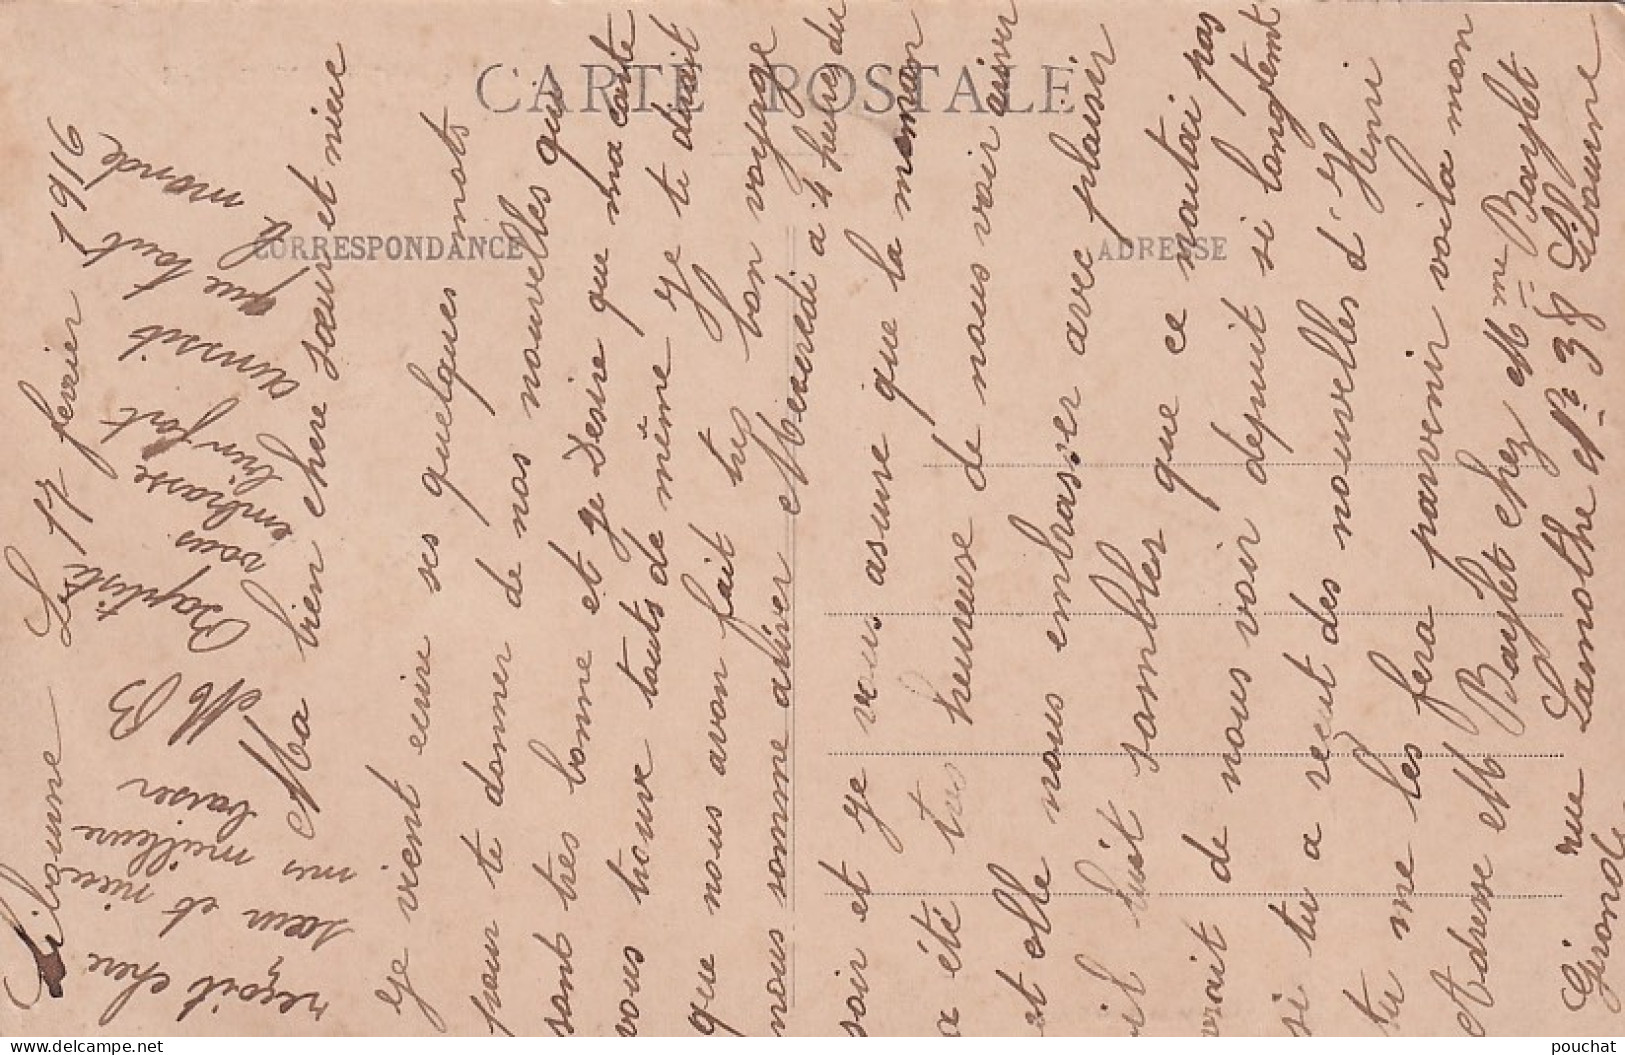 CARTE POSTALE
CORRESPONDANCE
ADRESSE
Libourne Le 17 fevrier 1916
Ma bien chere sœur et niece
Je vient ecrire ses quelques mots
pour te donner de nos nouvelles qui
sont très bonne et je Desire que ma carte
vous trouve touts de même Je te dirait
que nous avon fait tres bon voyage
nous somme ariver Mecredi a 4 hures du
soir et Je vous assure que la maman
a été tres heureuse de nous voir ariver
et elle nous embrasser avec plaisir
il luit sambler que ce n'aitai pas
vrait de nous voir depuit si longtemt
si tu a recut des nouvelles d'Henri
tu me les fera parvenir voila mon
Adresse M Baylet chez Mme Baylet
rue Lamothe No 38 Libourne
Gironde
reçoit chere
sœur et niece
mes meilleure
baiser
M B
Baptiste
vous
embrasse
bien fort
ainssit
que tout
le monde
pouchat
delcampe.net